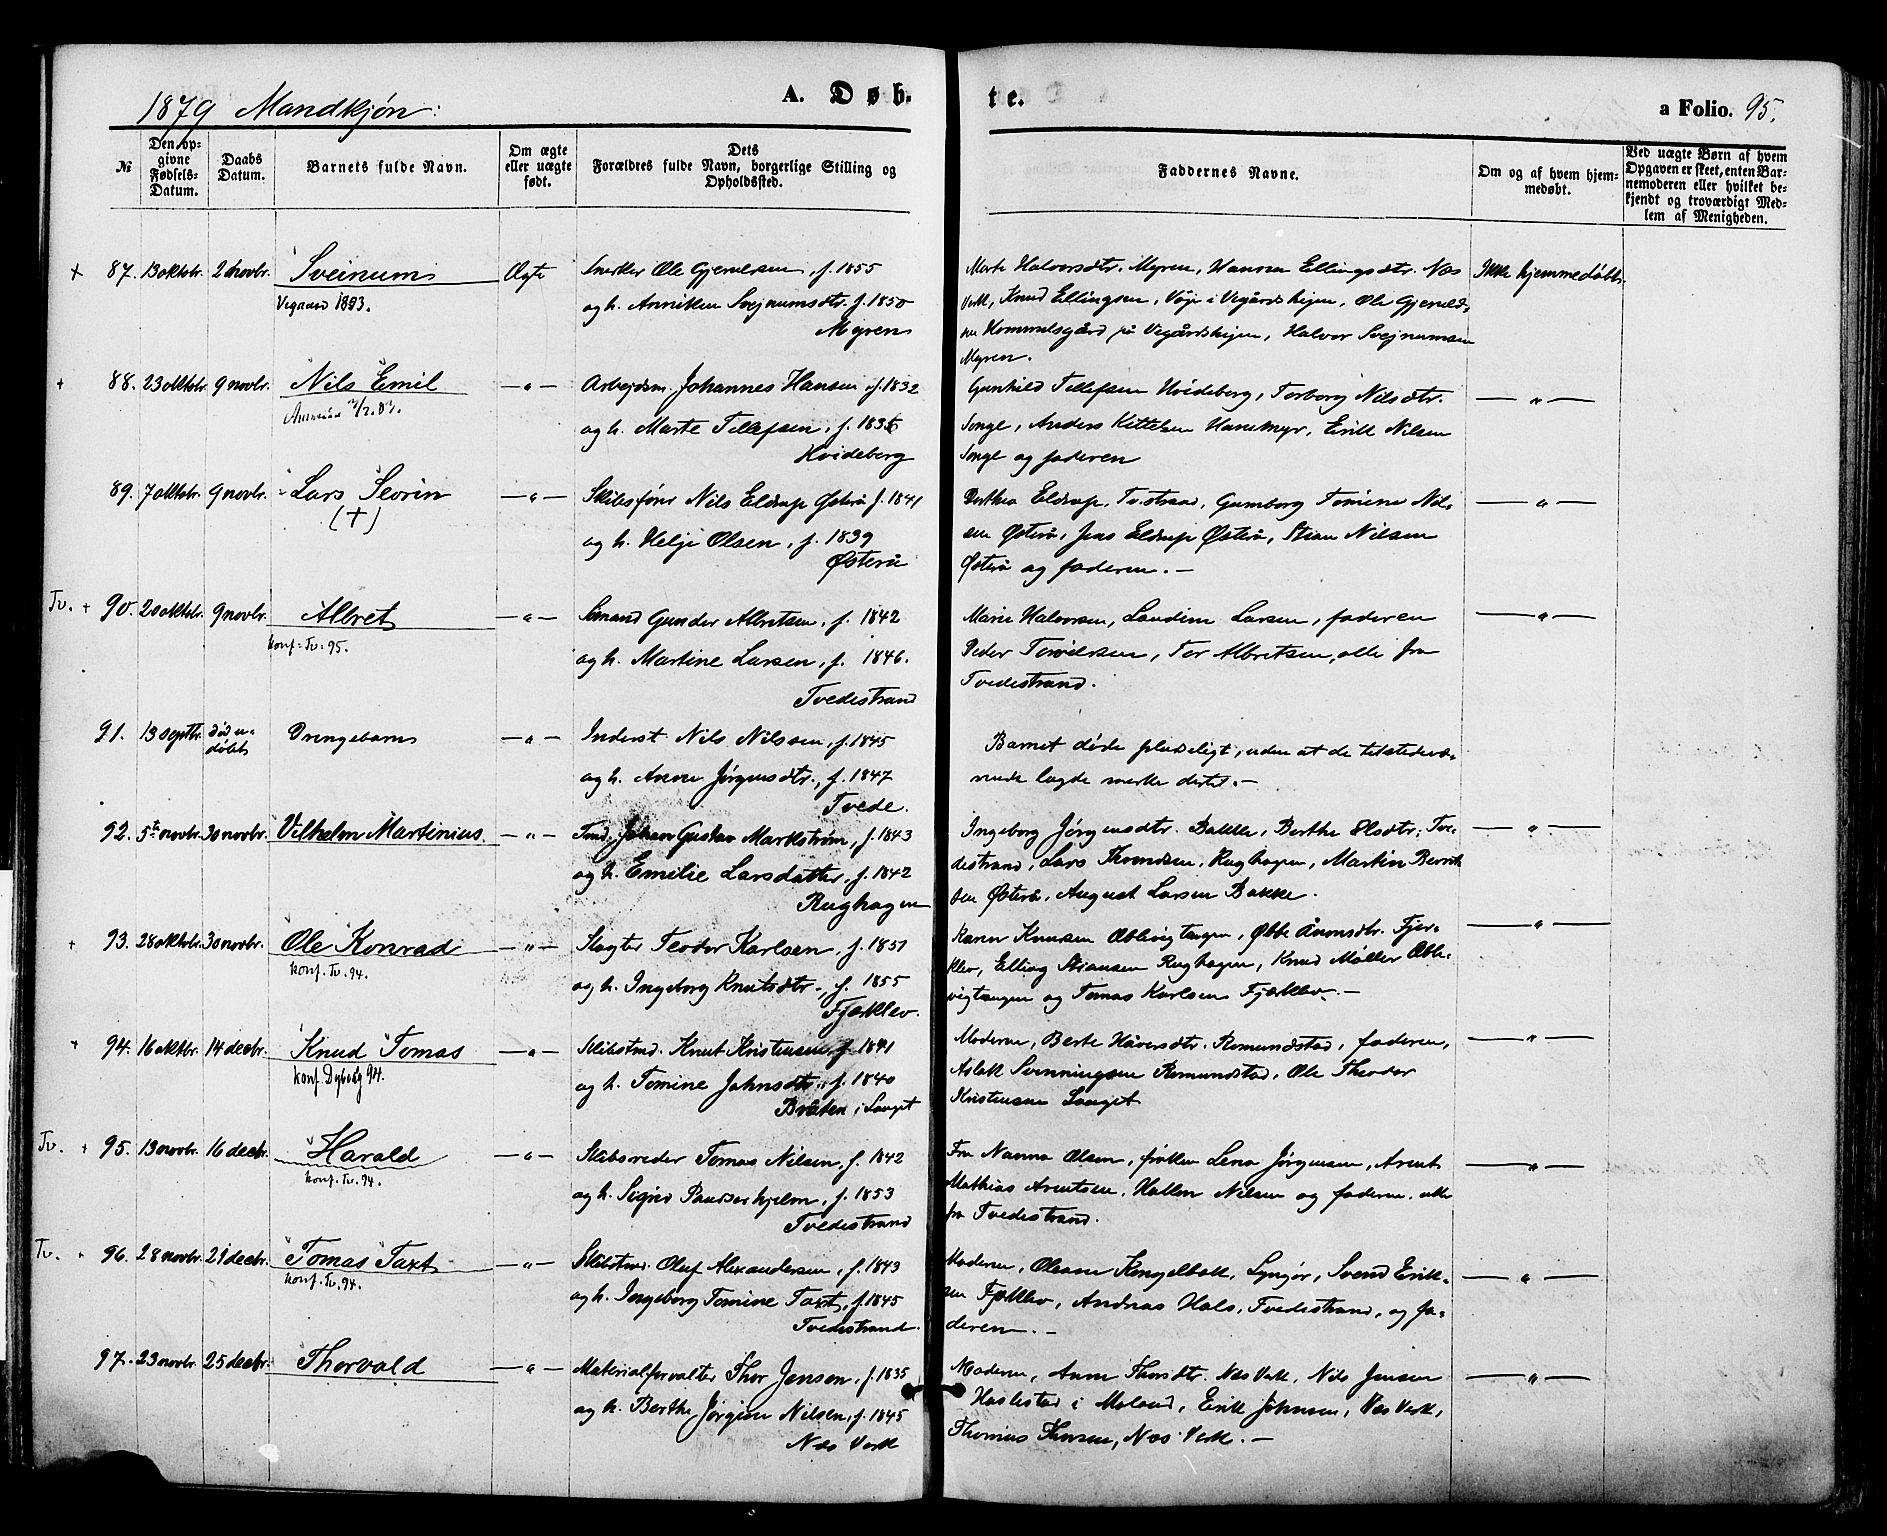 1879 Mandkjøn:
A. Døbte.
a Folio. 95.
№
Den opgivne Fødsels-Datum.
Daabs Datum.
Barnets fulde Navn.
Om ægte eller uægte født.
Dets Forældres fulde Navn, borgerlige Stilling og Opholdssted.
Faddernes Navne.
Om og af hvem hjemmedøbt.
Ved uægte Børn af hvem Opgaven er skeet, enten Barnemoderen eller hvilket bekjendt og troværdigt Medlem af Menigheden.
+ 87. 13 oktobr. 2 novbr. Sveinum Ægte Snerker Ole Gjeruldsen, f. 1855
Vegaard 1883.
og h. Anniken Svejnumsdtr. f. 1850
Myren
Marte Halvorsdtr. Myren, Hanna Ellingsdtr. Næs
Verk, Knud Ellingsen, Vøje i Vegårdshejen, Ole Gjerulds-
sen Hommelsgård på Vegårdshejen, Halvor Svejnumsen
Myren.
Ikke hjemmedøbt.
+ 88. 23 oktobr. 9 novbr. Nils Emil —"— Arbejdsm. Johannes Hansen, f. 1832
og h. Marte Tellefsen, f. 1835
Hvideberg
Gunhild Tellefsen Hvideberg, Torborg Nilsdtr.
Songe, Anders Kittelsen Hanemyr, Erik Nilsen
Songe og faderen
—"—
89. 7 oktobr. 9 novbr. Lars Severin —"— Skibsfører Nils Eldrup Østerå f. 1841
(+)
og h. Helje Olsen, f. 1839
Østerå
Dorthea Eldrup, Tvedstrand, Gunborg Tomine Nil-
sen Østerå, Jens Eldrup Østerå, Stian Nilsen
Østerå og faderen. —
—"—
Tv. + 90. 20 oktobr. 9 novbr. Albret —"— Sømand Gunder Albretsen, f. 1842
konf. Tv. 95.
og h. Martine Larsen, f. 1846.
Tvedestrand
Marie Halvorsen, Laudine Larsen, faderen
Peder Torvildsen, Tor Albretsen, alle fra
Tvedestrand.
—"—
91. 13 septbr. død u-
døbt
Drengebarn —"— Inderst Nils Nilssen, f. 1845
og h. Anne Jørgensdtr., f. 1847
Tvede.
Barnet døde pludseligt, uden at de tilstedevæ-
rende lagde mærke dertil. —
92. 5te novbr. 30 novbr. Vilhelm Martinius. —"— Tmd. Johan Gustav Markstrøm, f. 1843
og h. Emilie Larsdatter, f. 1842
Rughagen
Ingeborg Jørgensdtr. Bakke, Berthe Olsdtr. Tve-
destrand, Lars Rughagen, Martin Bernt-
sen Østerå, August Larsen Bakke.
—"—
+ 93. 28 oktobr. 30 novbr. Ole Konrad —"— Slagter Teodor Karlsen, f. 1851
konf. Tv. 94.
og h. Ingeborg Knutsdtr., f. 1855
Fjærklev.
Karen Knutsen Fjær-
klev, Elling Stiansen Rughagen, Knud Møller
og Tomas Karlsen Fjærklev. —
—"—
+ 94. 16 oktbr. 14 decbr. Knud Tomas —"— Skibstmd. Knut Kristensen, f. 1841
konf. Dybvåg 94.
og h. Tomine Jahnsdtr., f. 1840
Bråten i Sauget
Moderen, Berte Håversdtr. Romundstad, faderen,
Aslak Svenningsen Romundstad, Ole Theodor
Kristensen Sauget
—"—
Tv. + 95. 13 novbr. 16 decbr. Harald —"— Skibsreder Tomas Nilsen, f. 1842
konf. Tv. 94.
og h. Signe Paurserhjelm, f. 1853
Tvedestrand
Fru Nanna Olsen, frøken Lena Jørgensen, Arent
Mathias Arentsen, Hallon Nilsen og faderen, alle
fra Tvedestrand.
—"—
Tv. + 96. 28 novbr. 21 decbr. Tomas Taxt —"— Skibstmd. Oluf Alexandersen, f. 1843
konf. Tv. 94.
og h. Ingeborg Tomine Taxt, f. 1845
Tvedestrand.
Moderen, Oleane Kengelbak, Lyngør, Svend Erik-
sen Fjærklev, Andreas Hals, Tvedestrand, og fa-
deren. —
—"—
97. 23 novbr. 25 decbr. Thorvald —"— Materialforvalter Thor Jensen, f. 1835
og h. Berthe Jørgine Nilsen, f. 1845
Næs Verk
Moderen, Anne Thorsdtr. Næs Verk, Nils Jensen
Haslestad i Moland, Erik Johnsen, Næs Verk,
Thomas Næs Verk. —
—"—